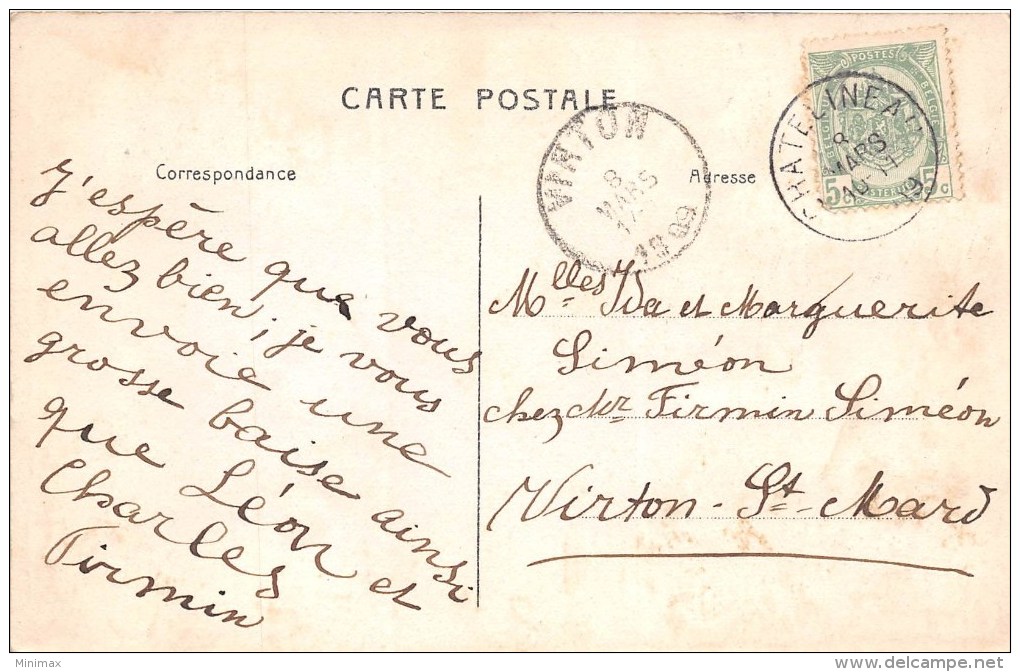 CARTE POSTALE
Correspondance
Adresse
J'espère que vous
allez bien; je vous
envoie une
grosse baise ainsi
que Léon et
Charles
Firmin
VIRTON
8
MARS
1909
CHATELINEAU
8
MARS
POSTES
5 c
Mlles Ida et Marguerite
Siméon
chez Mr Firmin Siméon
Virton-St-Mard
Minimax
www.delcampe.net